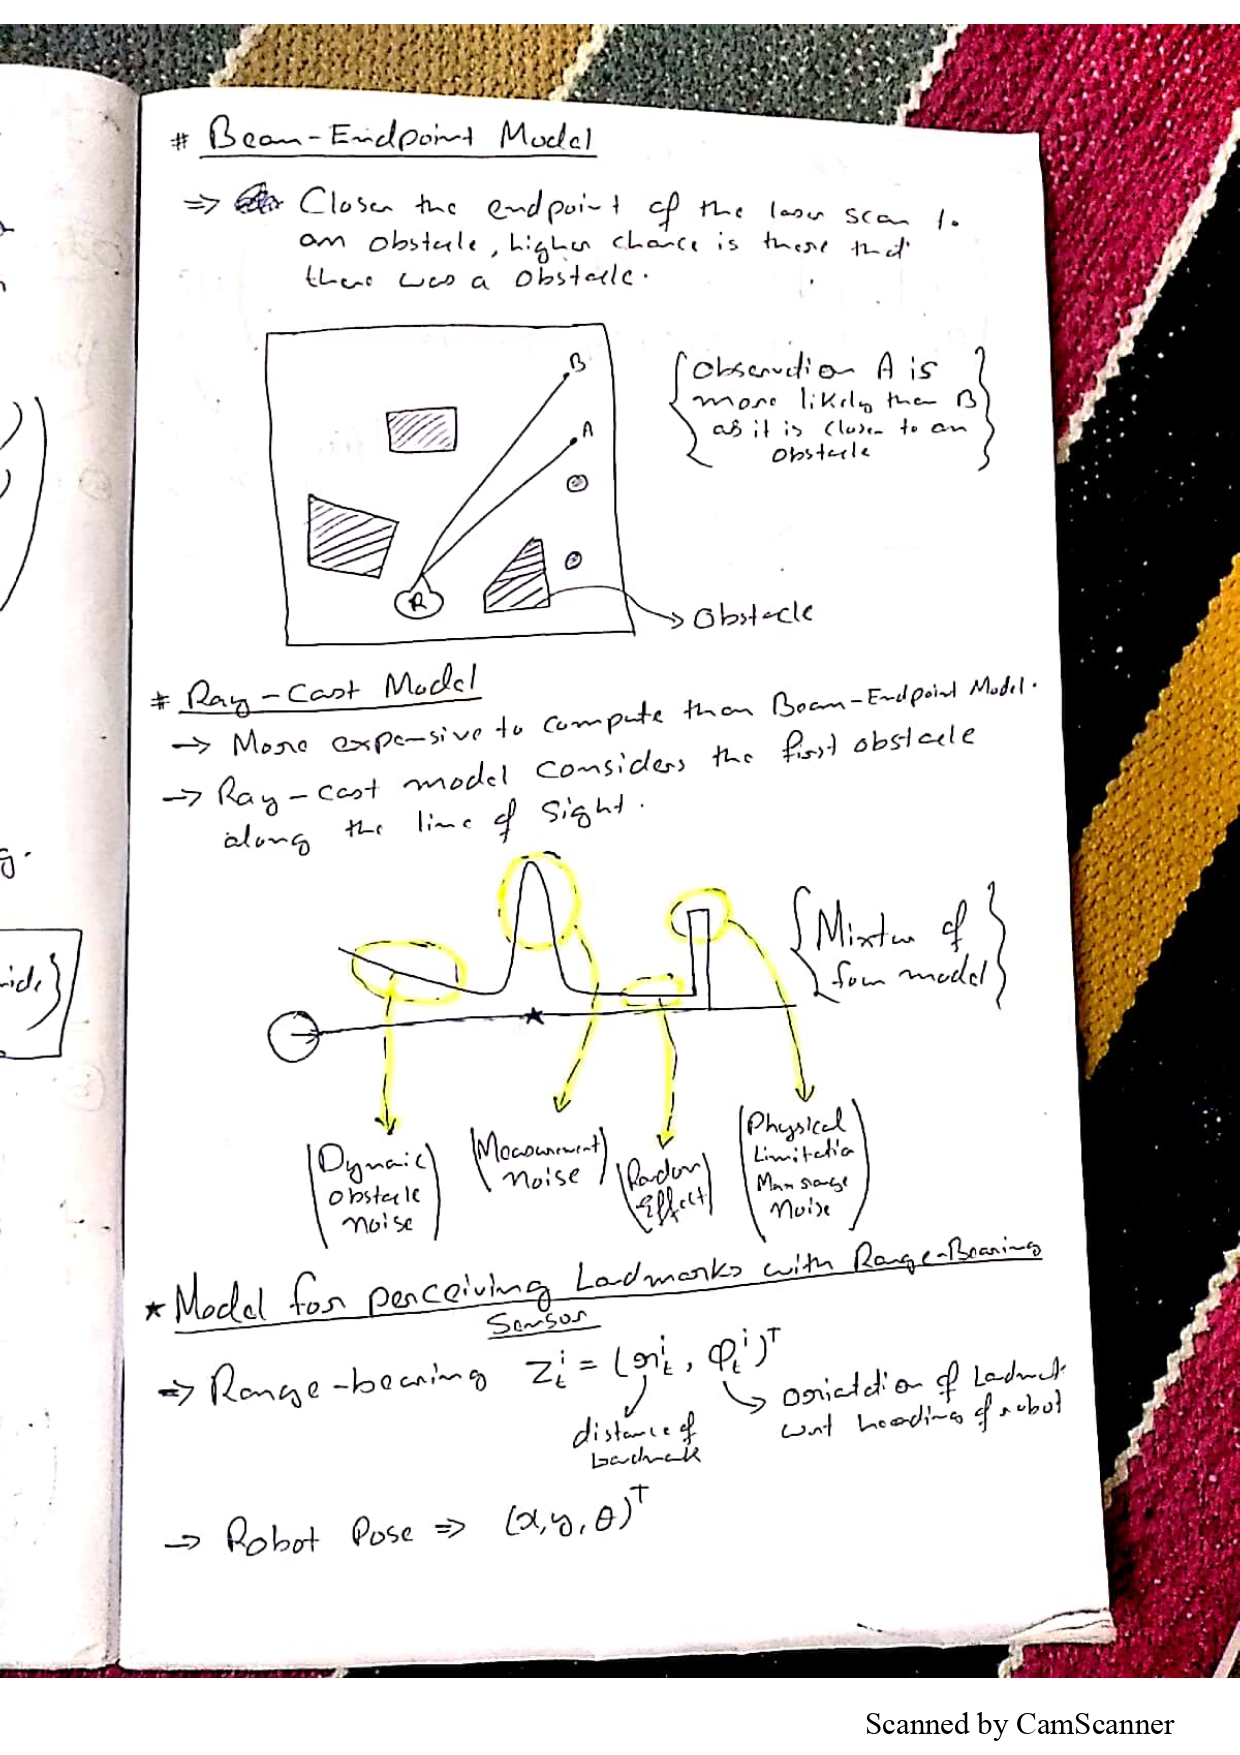 # Beam-Endpoint Model
=> Closer the endpoint of the laser scan to
an obstacle, higher chance is there that
there was a obstacle.
B
A
R
{Observation A is
more likely than B
as it is closer to an
obstacle}
→ Obstacle
# Ray-Cast Model
→ More expensive to compute than Beam-Endpoint Model.
→ Ray-cast model considers the first obstacle
along the line of sight.
{Mixture of
four model}
(Dynaic
obstacle
noise)
(Measurement
noise)
(Random
Effect)
(Physical
Limitation
Max range
Noise)
★ Model for perceiving Ladmarks with Range-Bearing
Sensor
=> Range-bearing z_t^i = (r_t^i, φ_t^i)^T
distance of
landmark
wrt heading of robot
→ Robot Pose => (x, y, θ)^T
g.
Scanned by CamScanner